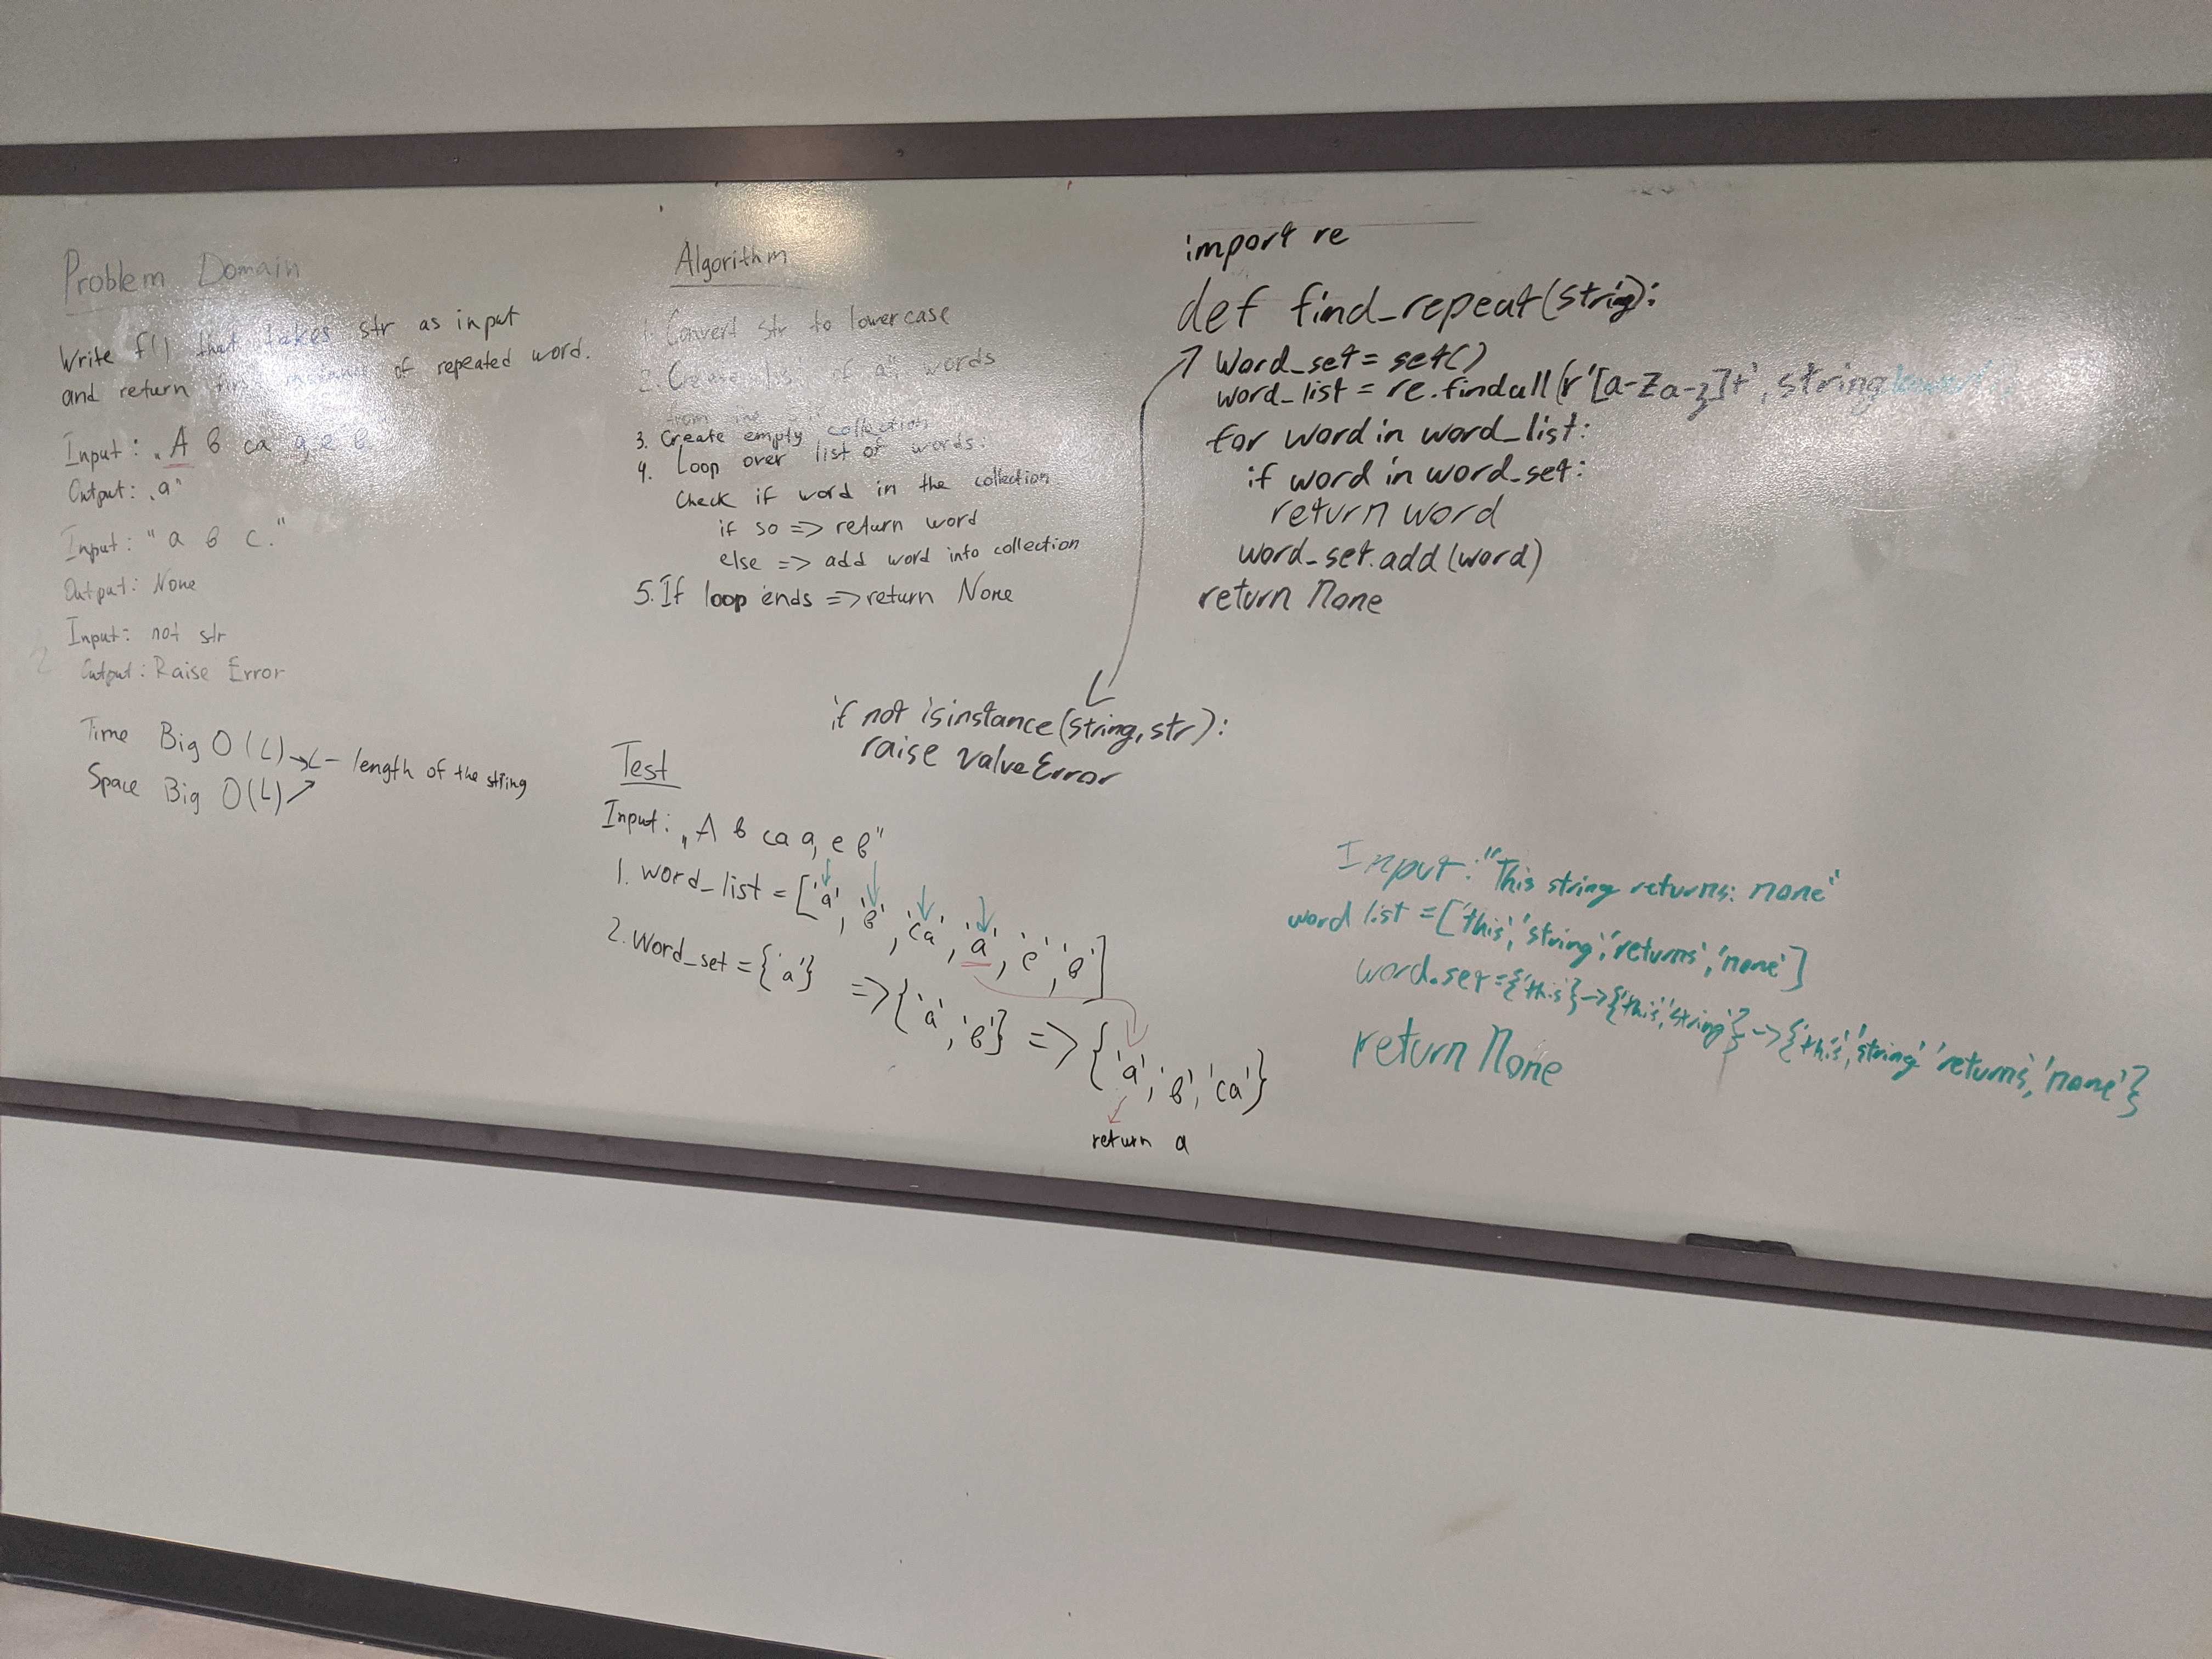 Problem Domain
Write f() that takes str as input
and return first instance of repeated word.
Input: „A b ca a, e b
Output: „a"
Input: "a b c."
Output: None
Input: not str
Output: Raise Error
Time Big O(L) → L - length of the string
Space Big O(L)
Algorithm
1. Convert str to lowercase
2. Create list of all words
from the
3. Create empty collection
4. Loop over list of words:
Check if word in the collection
if so => return word
else => add word into collection
5. If loop ends => return None
import re
def find_repeat(strig):
Word_set = set()
word_list = re.findall(r'[a-Za-z]+', string.lower()
for word in word_list:
if word in word_set:
return word
word_set.add(word)
return None
if not isinstance(string, str):
raise ValueError
Test
Input: „A b ca a, e b"
1. word_list = ['a', 'b', 'ca', 'a', 'e', 'b']
2. Word_set = {'a'} => {'a', 'b'} => {'a', 'b', 'ca'}
return a
Input: "This string returns: none"
word list = ['this', 'string', 'returns', 'none']
word.set = {'this'} -> {'this', 'string'} -> {'this', 'string' 'returns', 'none'}
return None